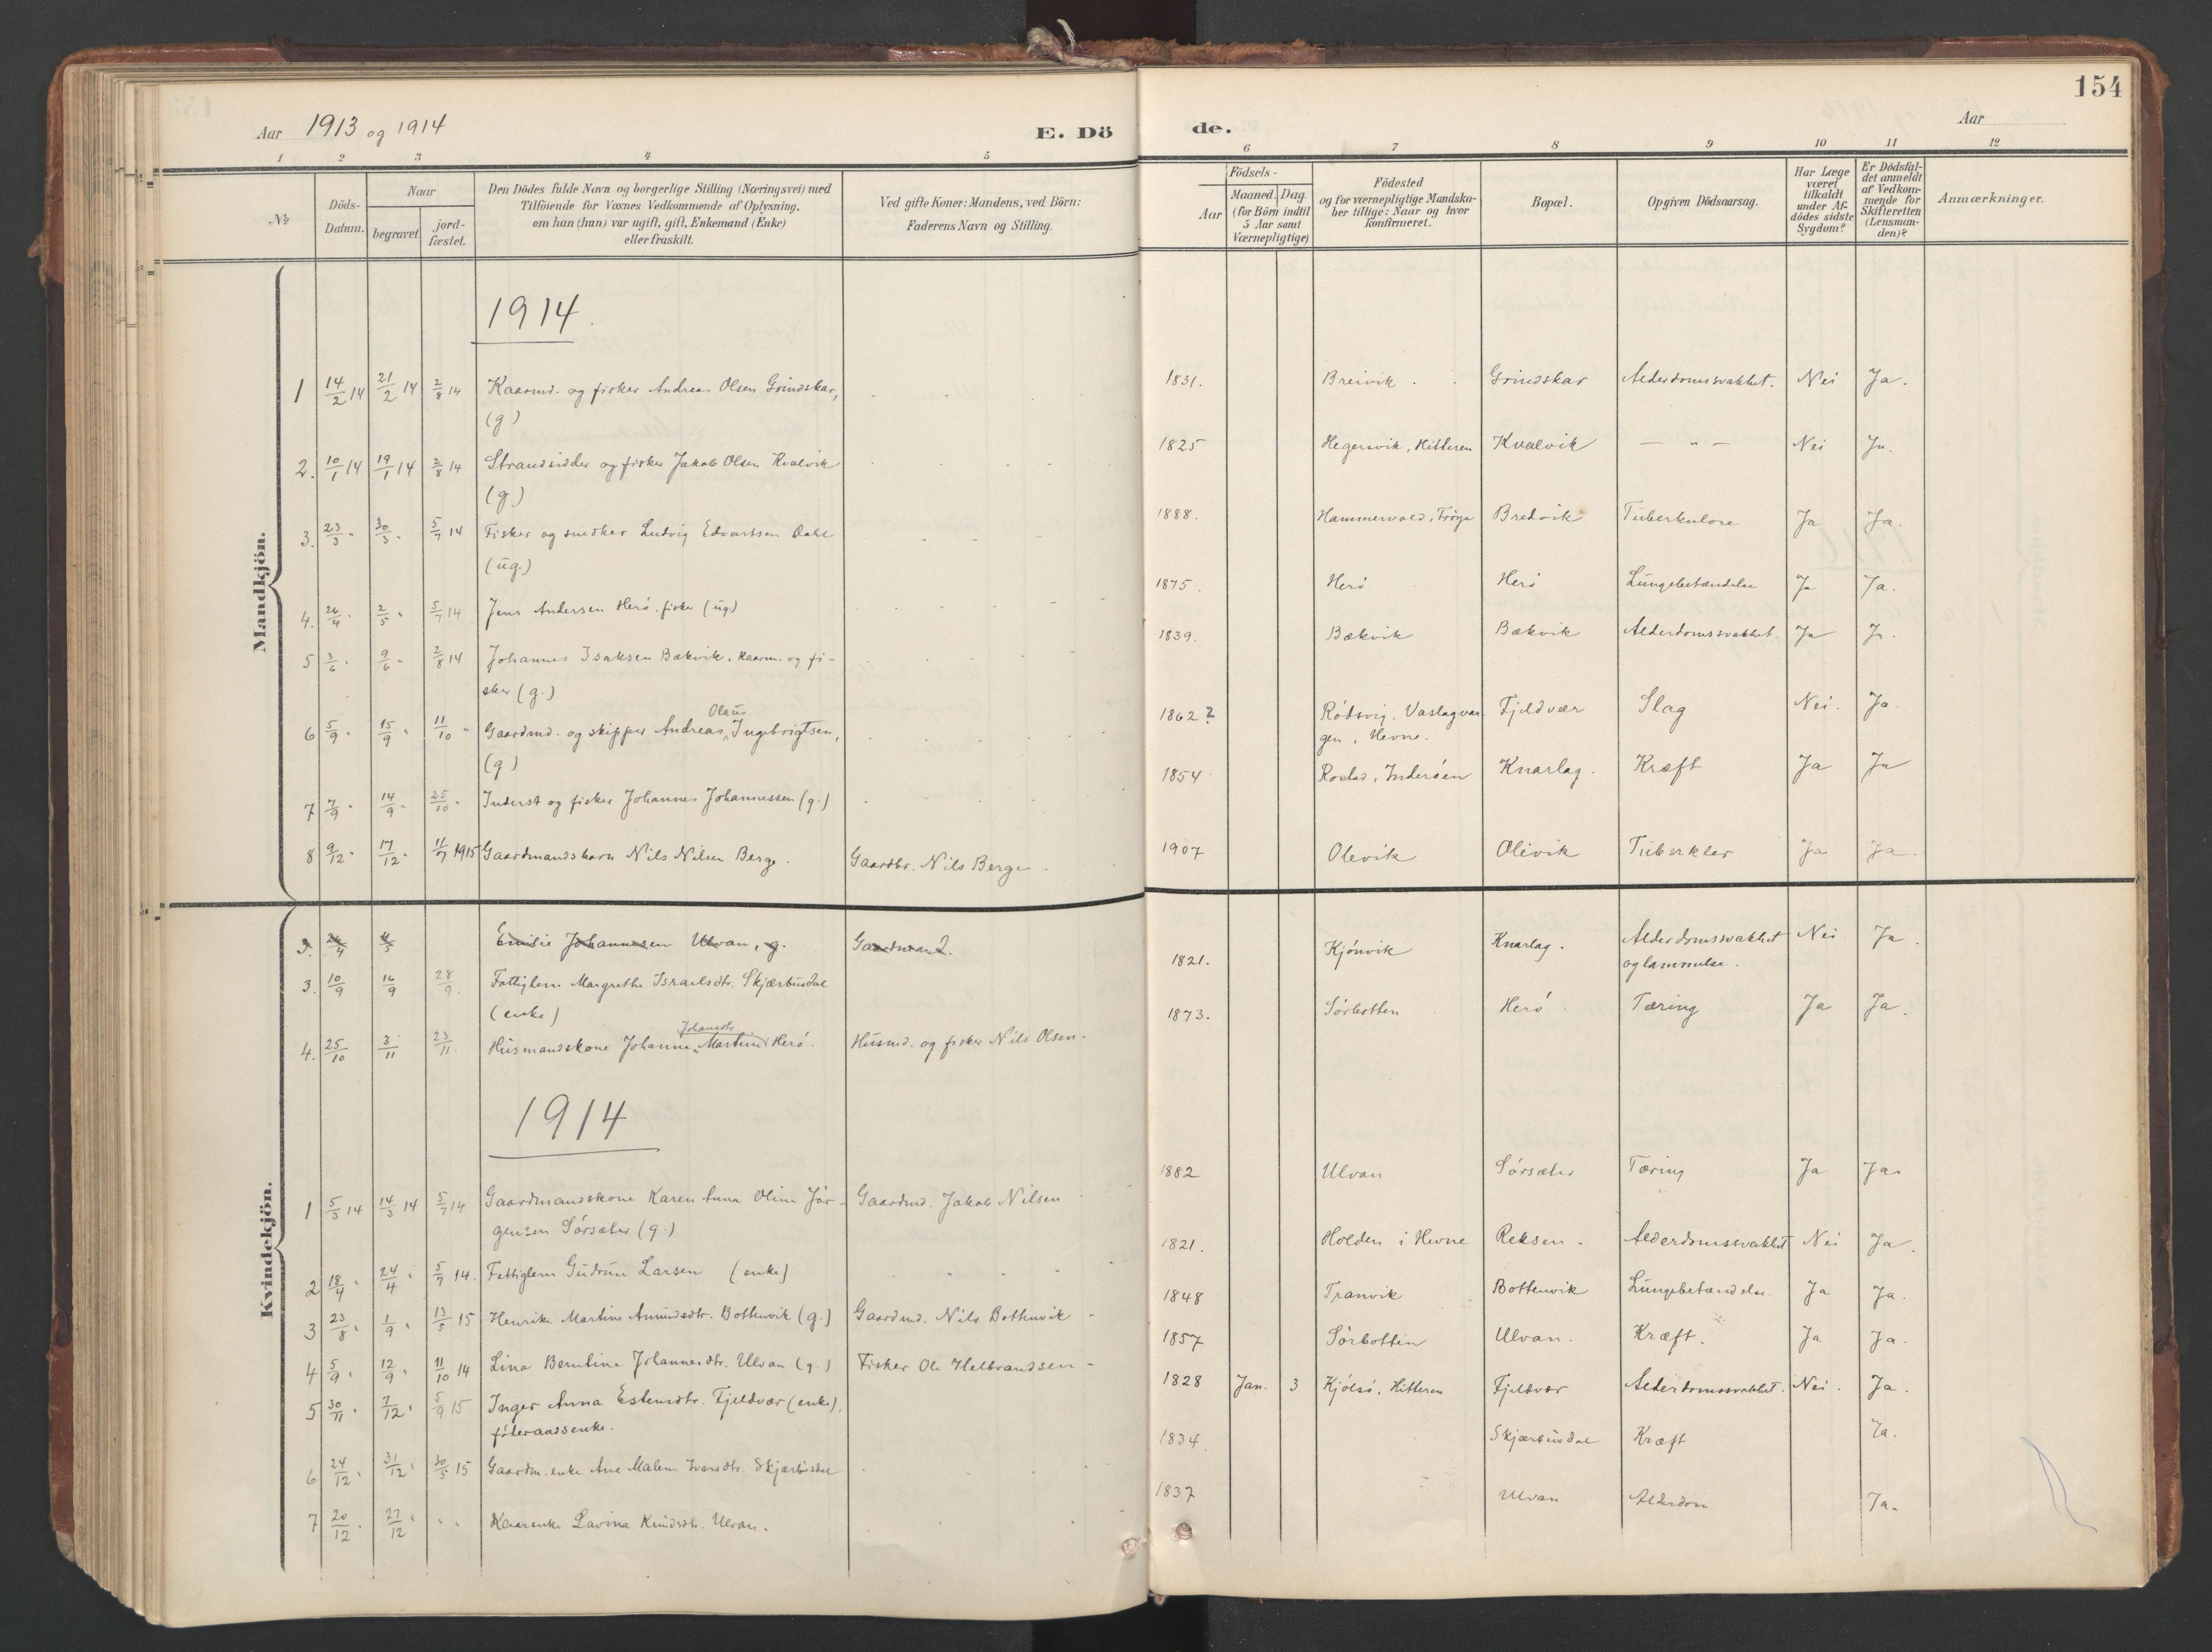 154
Aar 1913 og 1914
E. Dö
de.
Aar
1 2 3 4 5
6 7 8 9 10 11 12
No
Döds-
Datum.
Naar
begravet.
jord-
fæstet.
Den Dödes fulde Navn og borgerlige Stilling (Næringsvei) med
Tilföiende for Voxnes Vedkommende af Oplysning,
om han (hun) var ugift, gift, Enkemand (Enke)
eller fraskilt.
Ved gifte Koner: Mandens, ved Börn:
Faderens Navn og Stilling.
Födsels-
Aar
Maaned. Dag.
(for Börn indtil
5 Aar samt
Værnepligtige)
Födested
og for værnepligtige Mandska-
ber tillige: Naar og hvor
konfirmeret.
Bopæl.
Opgiven Dödsaarsag.
Har Læge
været
tilkaldt
under Af-
dödes sidste
Sygdom?
Er Dödsfal-
det anmeldt
af Vedkom-
mende for
Skifteretten
(Lensman-
den)?
Anmærkninger.
Mandkjön.
1914.
1 14/2 14 21/2 14 2/8 14 Kaarmd. og fisker Andreas Olsen Grindskar, 1831. Breivik Grindskar Alderdomssvakhet. Nei Ja.
(g)
2. 10/1 14 19/1 14 2/8 14 Strandsidder og fisker Jakob Olsen Kvalvik 1825 Hegersvik, Hitteren Kvalvik — " — Nei Ja.
(g)
3. 23/3 " 30/3 " 5/7 14 Fisker og snedker Ludvig Edvartsen Dahl 1888. Hammervold, Fröya Bredvik Tuberkulose Ja Ja.
(ug.)
4. 26/4 " 2/5 " 5/7 14 Jens Andersen Herö. fisker (ug) 1875. Herö Herö Lungebetændelse Ja Ja.
5 3/6 " 9/6 " 2/8 14 Johannes Isaksen Bækvik, kaarm. og fi- 1839. Bækvik Bækvik Alderdomssvakhet. Ja Ja.
sker (g.)
Olaus
6 5/9 " 15/9 " 11/10 " Gaardmd. og skipper Andreas Ingebrigtsen, 1862? Rödsvig, Vaslagvan- Fjeldvær Slag Nei. Ja.
(g) gen, Hevne.
7 7/9 14/9 " 25/10 " Inderst og fisker Johannes Johannessen (g.) 1854 Inderöen Knarlag. Kræft Ja Ja
8 9/12 " 17/12 " 11/7 1915 Gaardmandsbarn Nils Nilsen Berge. Gaardbr. Nils Berge. 1907 Olevik Olevik Tuberkler Ja Ja.
Kvindekjön.
26/4 4/5 Emilie Johannesen Ulvan, g. Gaardmand.
3. 10/9 16/9 28/9. Fattiglem Margrethe Israelsdtr. Skjærbusdal 1821. Kjönvik Knarlag. Alderdomssvakhet Nei Ja.
(enke) og lammelse.
Johansdtr.
4. 25/10 3/11 23/11. Husmandskone Johanna Martine Herö. Husmd. og fisker Nils Olsen. 1873. Sörbotten Herö Tæring Ja Ja.
1914
1 5/3 14 14/3 14 5/7 14 Gaardmandskone Karen Anna Oline Jör- Gaardmd. Jakob Nilsen 1882 Ulvan Sörsæter Tæring Ja Ja.
gensen Sörsæter (g.)
2 18/4 " 24/4 " 5/7 14. Fattiglem Gudrun Larsen (enke) 1821. Holden i Hevne Reksen. Alderdomssvakhet Nei Ja.
3 23/8 " 1/9 " 13/5 15 Henrika Martine Amundsdtr. Bottenvik (g.) Gaardmd. Nils Bottenvik 1848 Tranvik Bottenvik Lungebetændelse. Ja Ja.
4 5/9 " 12/9 " 11/10 14 Lina Berntine Johannesdtr. Ulvan (g.) Fisker Ole Helbrandsen 1857 Sörbotten Ulvan. Kræft. Ja Ja.
5 30/11 " 7/12 " 5/9 15 Inger Anna Estensdtr. Fjeldvær (enke). 1828 Jan. 3 Kjölsö, Hitteren Fjeldvær Alderdomssvakhet. Nei. Ja.
föderaadsenke.
6 24/12 " 31/12 " 30/5 15 Gaardm. enke Ane Malene Iversdtr. Skjærbusdal 1834. Skjærbusdal Kræft Ja.
7 20/12 " 27/12 " " " Kaarenke Lavina Knudsdtr. Ulvan. 1837 Ulvan Alderdom Ja.